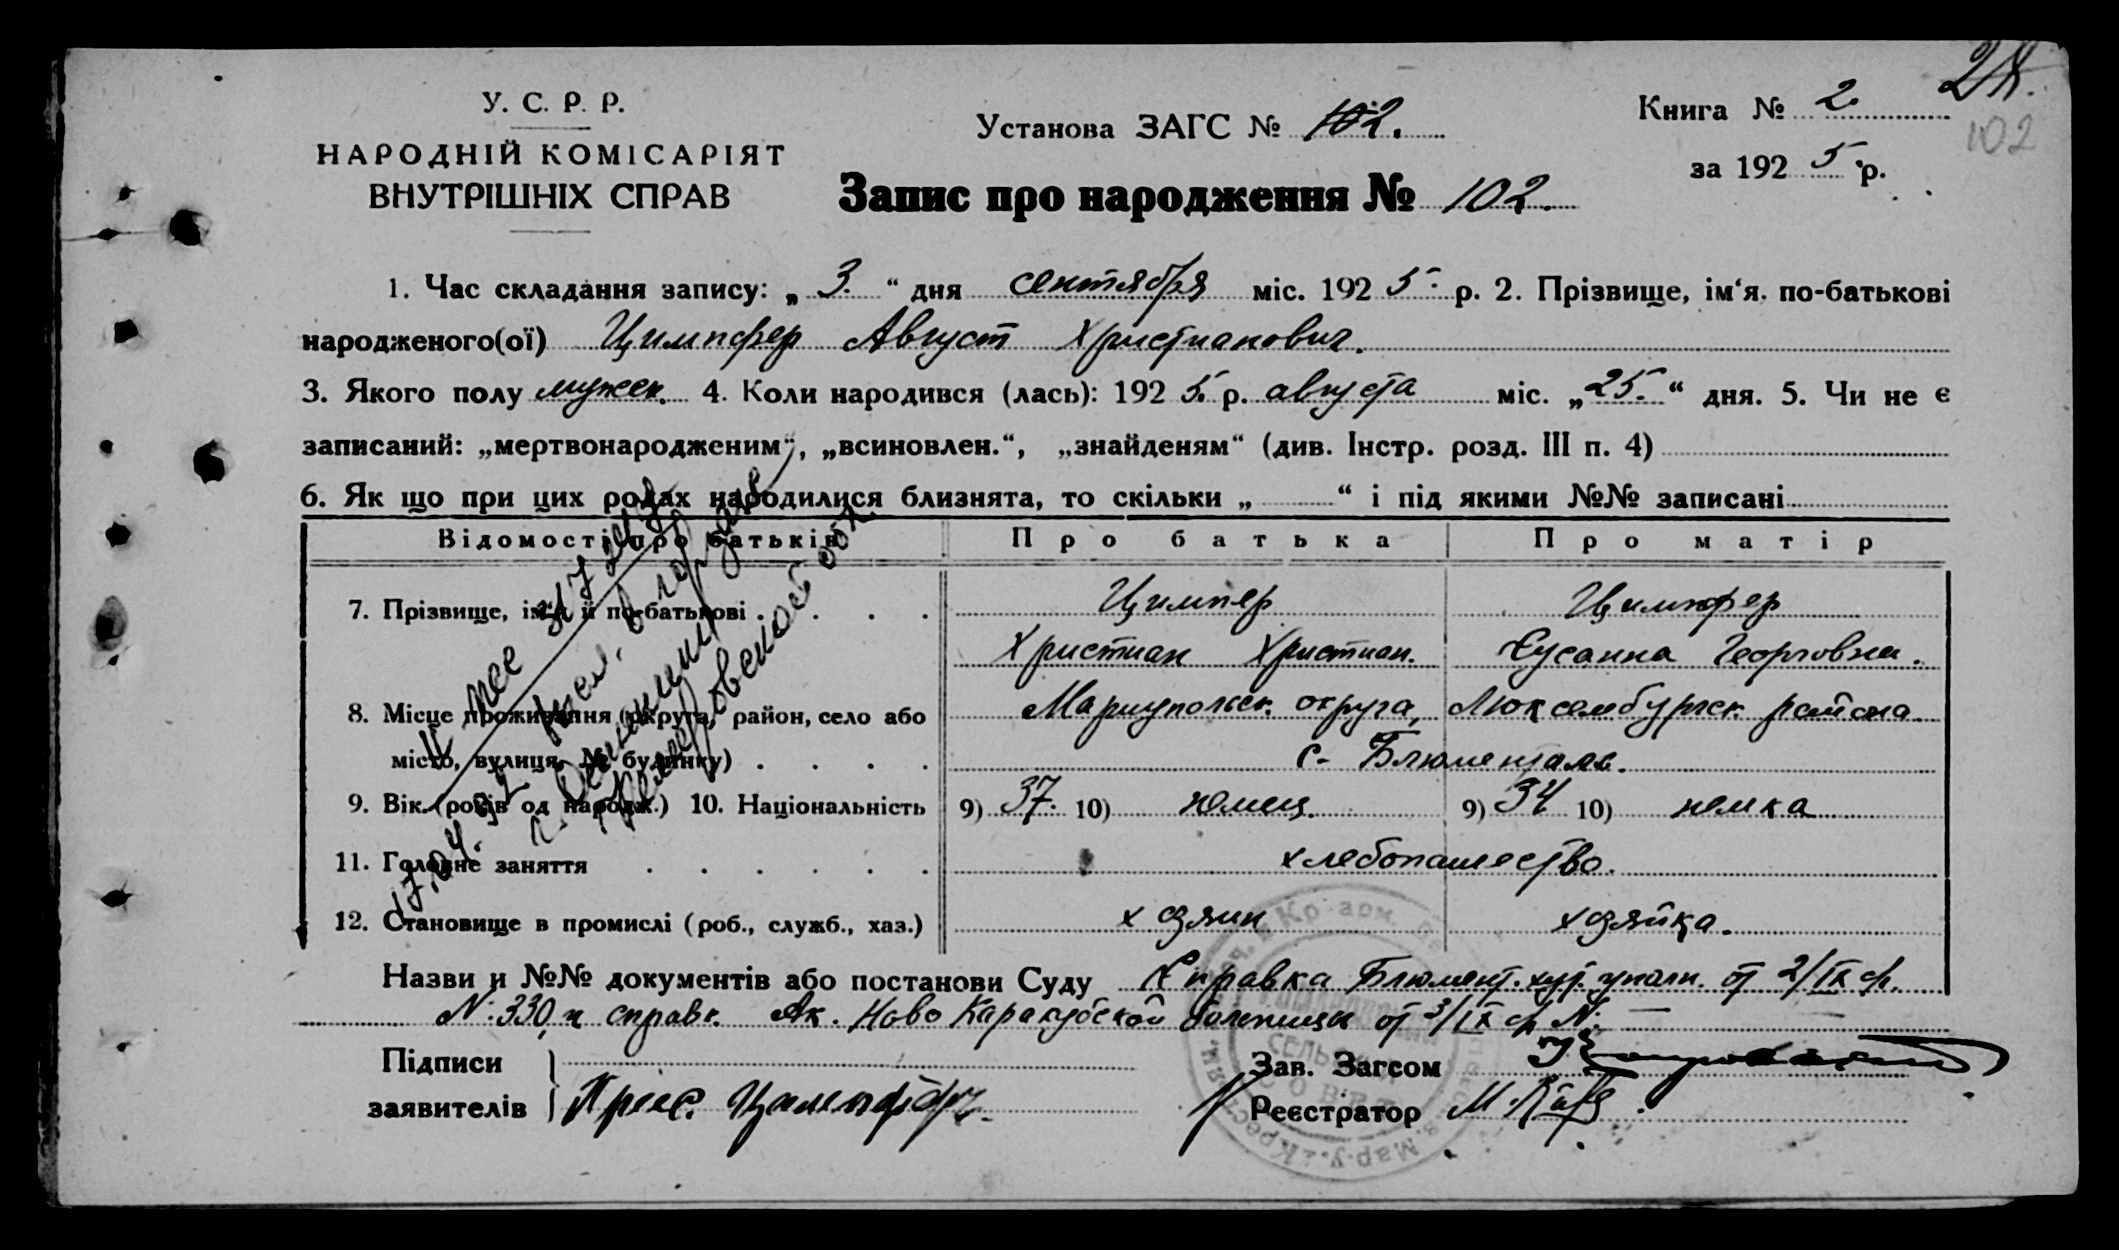 У. С. Р. Р.
НАРОДНІЙ КОМІСАРІЯТ
ВНУТРІШНІХ СПРАВ
Установа ЗАГС № 102.
Книга № 2.
за 1925 р.
102
Запис про народження № 102.
1. Час складання запису: „ 3. “ дня сентября міс. 1925 р. 2. Прізвище, ім‘я, по-батькові
народженого(ої) Цимпфер Август Христианович.
3. Якого полу мужск. 4. Коли народився (лась): 1925 р. августа міс. „25.“ дня. 5. Чи не є
записаний: „мертвонародженим“, „всиновлен.“, „знайденям“ (див. Інстр. розд. III п. 4)
6. Як що при цих родах народилися близнята, то скільки „ “ і під якими №№ записані
Відомості про батьків Про батька Про матір
7. Прізвище, ім‘я й по-батькові . . . . Цимпер Цимпфер
Христиан Христиан. Сусанна Георговна.
8. Місце проживання (округа, район, село або Мариупольск. округа, Люксембургск. района
місто, вулиця, № будинку) . . . . с. Блюменталь.
9. Вік (років од народж.) 10. Національність 9) 37. 10) немец. 9) 34 10) немка
11. Головне заняття . . . . . . хлебопашество.
12. Становище в промислі (роб., служб., хаз.) хозяин хозяйка.
Назви и №№ документів або постанови Суду Справка Блюмент. хут. уполн. от 2/IX с/г.
N: 330 и справк. Ак. Ново Каракубской больницы от 3/IX с/г N: —
Підписи
заявителів
Зав. Загсом
Реєстратор
17.04.